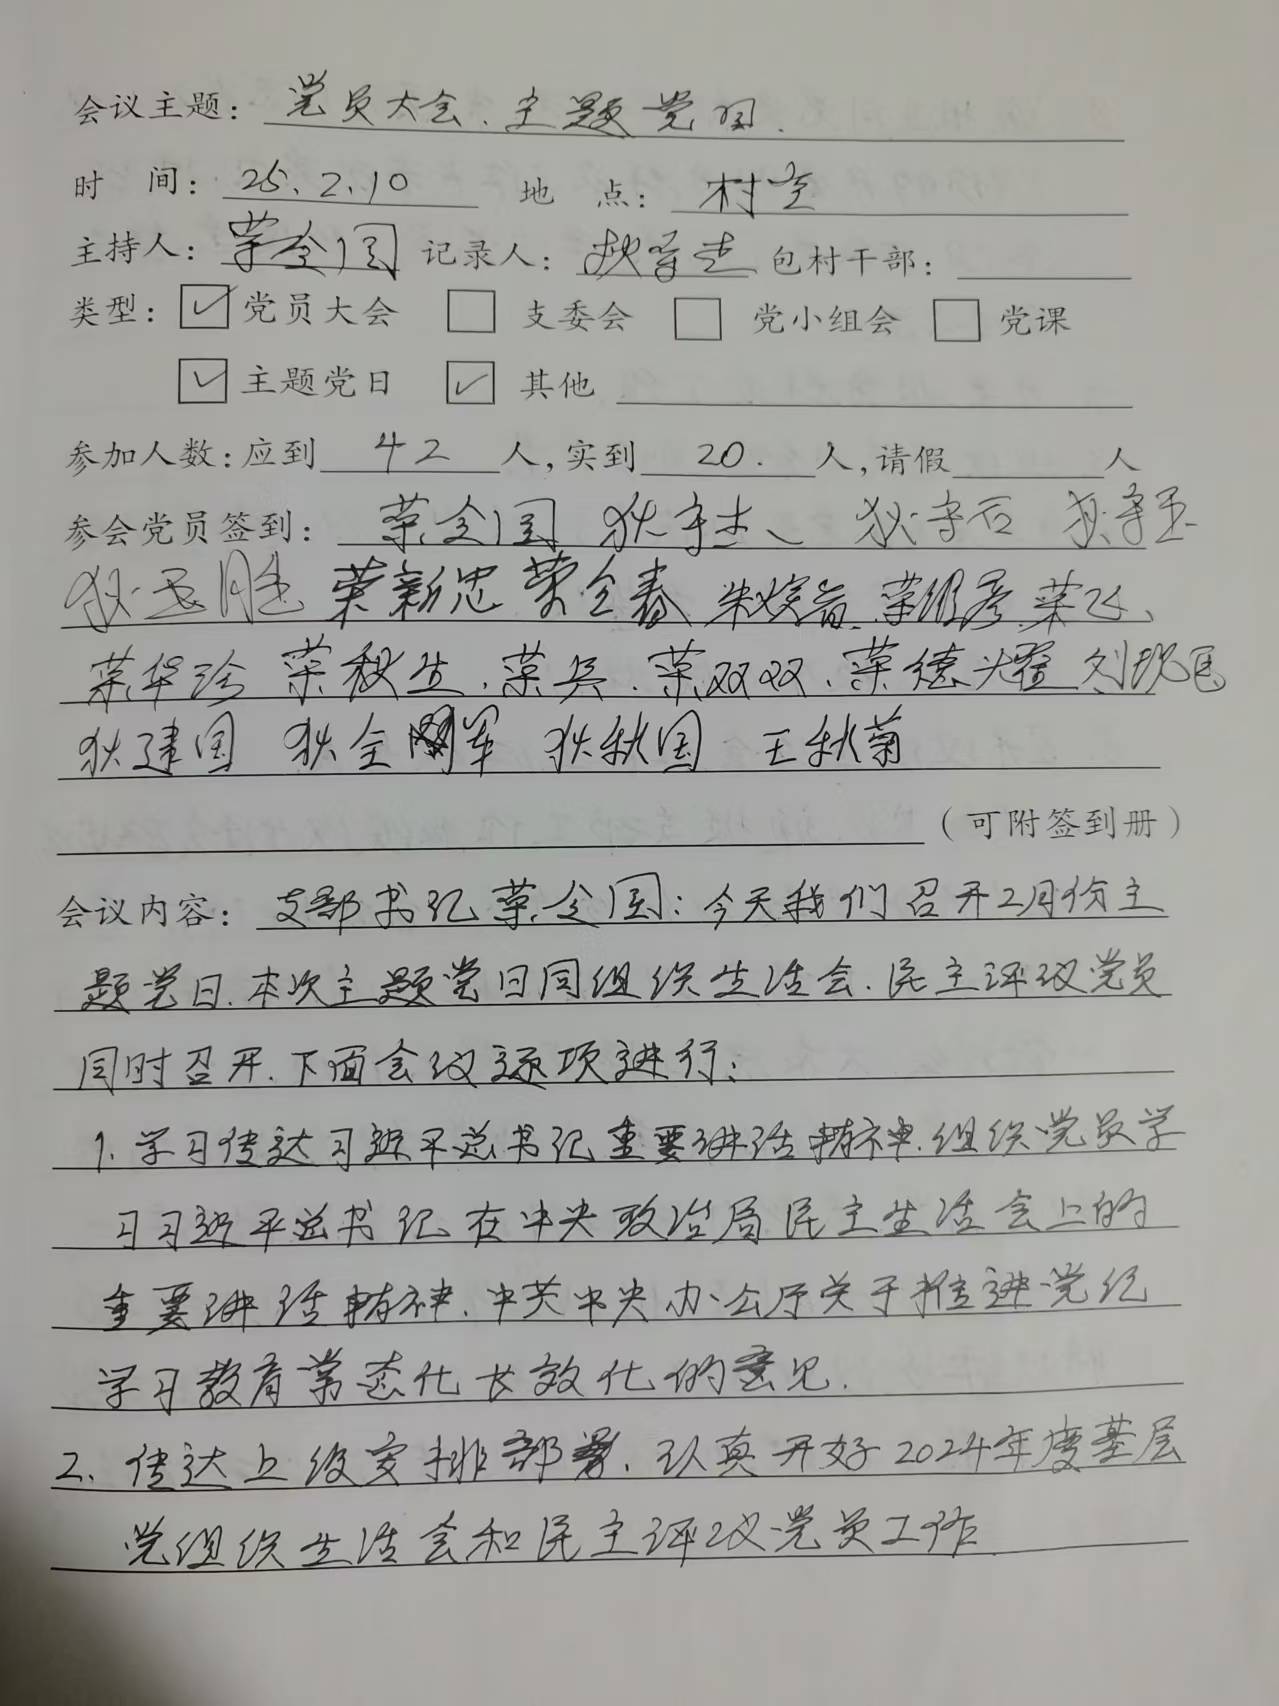 会议主题：党员大会、主题党日.
时 间：25.2.10 地 点：村室
主持人：荣全国 记录人：狄守志 包村干部：
类型：☑党员大会 □支委会 □党小组会 □党课
☑主题党日 ☑其他
参加人数：应到 42 人，实到 20. 人，请假 人
参会党员签到：荣全国 狄守志 狄守石 狄守玉
狄玉胜 荣新忠 荣全春 荣组彦 荣飞
荣华珍 荣秋生、荣兵、荣双双、荣德耀 刘现民
狄建国 狄全军 狄秋国 王秋菊
（可附签到册）
会议内容：支部书记荣全国：今天我们召开2月份主
题党日.本次主题党日同组织生活会.民主评议党员
同时召开.下面会议逐项进行：
1. 学习传达习近平总书记重要讲话精神.组织党员学
习习近平总书记在中央政治局民主生活会上的
重要讲话精神.中共中央办公厅关于推进党纪
学习教育常态化长效化的意见.
2. 传达上级安排部署.认真开好2024年度基层
党组织生活会和民主评议党员工作